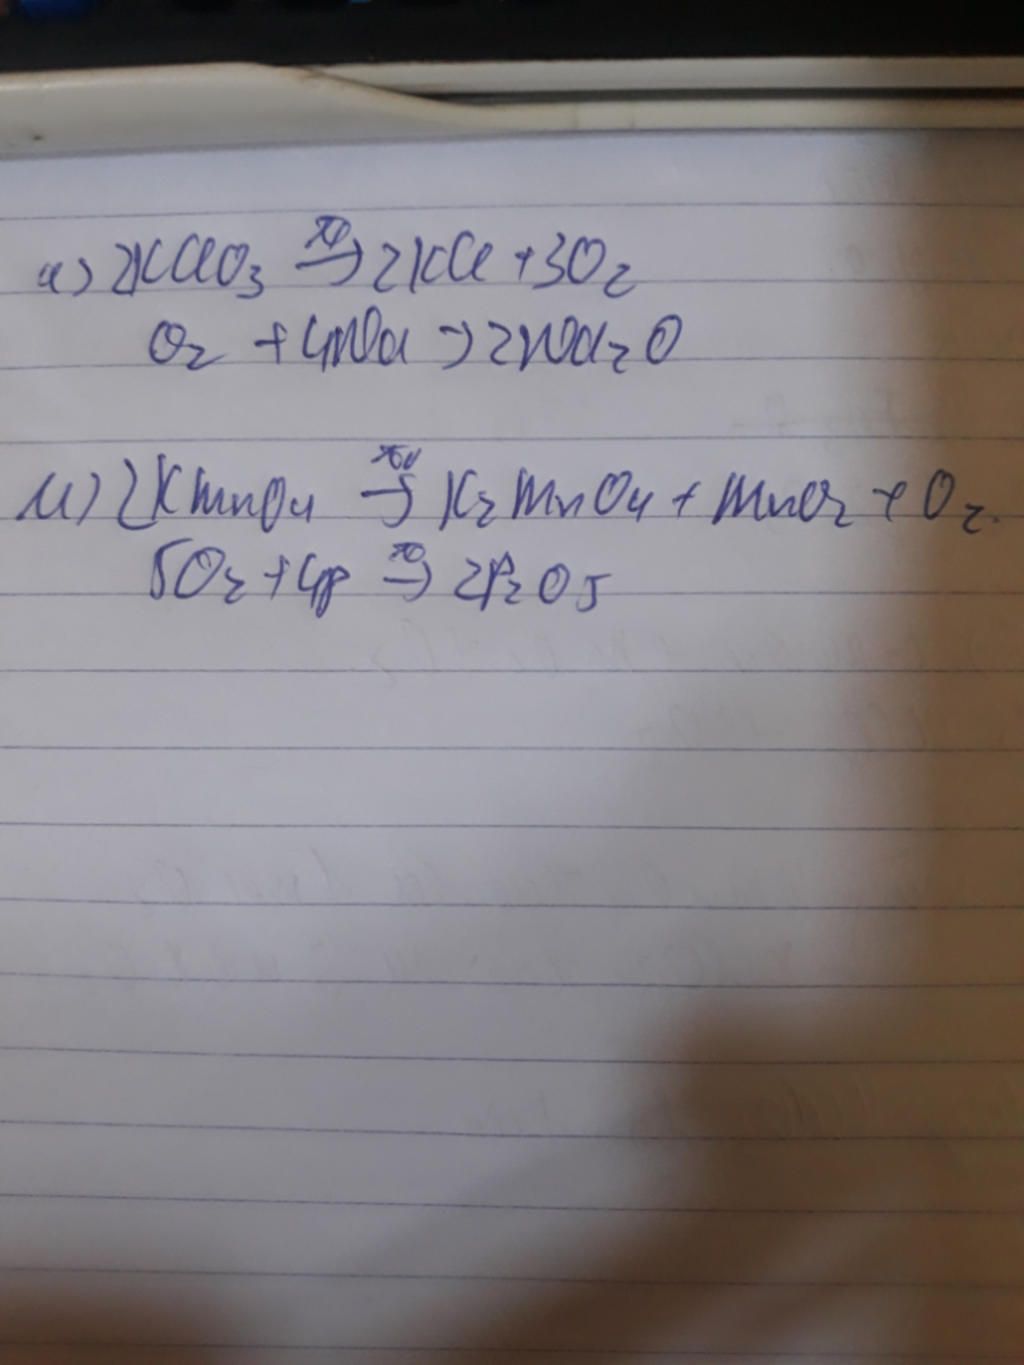 a) 2KClO3 t0→ 2KCl + 3O2
O2 + 4Na → 2Na2O
b) 2KMnO4 t0→ K2MnO4 + MnO2 + O2
5O2 + 4P t0→ 2P2O5